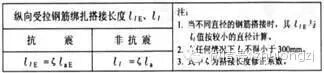 纵向受拉钢筋绑扎搭接长度 l lE、l l
抗 震
非 抗 震
l lE = ζ l aE
l l = ζ l a
注:
1. 当不同直径的钢筋搭接时,其 l lE 与
l l 值按较小的直径计算。
2. 在任何情况下 l l 不得小于300mm.
3. 式中 ζ 为搭接长度修正系数。